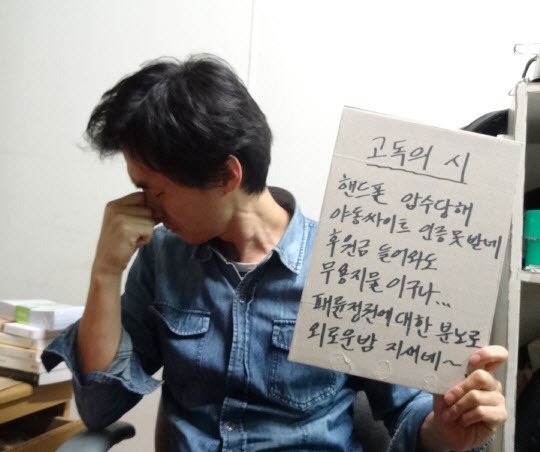 고독의 시
핸드폰 압수당해
야동싸이트 인증못받네
후원금 들어와도
무용지물이구나...
패륜정권에 대한 분노로
외로운밤 지새네~